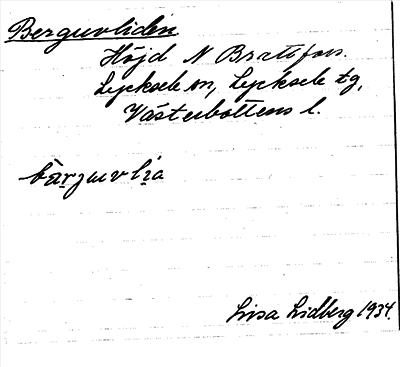 Berguvliden
Höjd N Bratsfors.
Lycksele sn, Lycksele tg,
Västerbottens l.
bàrjuvlìa
Lisa Lidberg 1934.